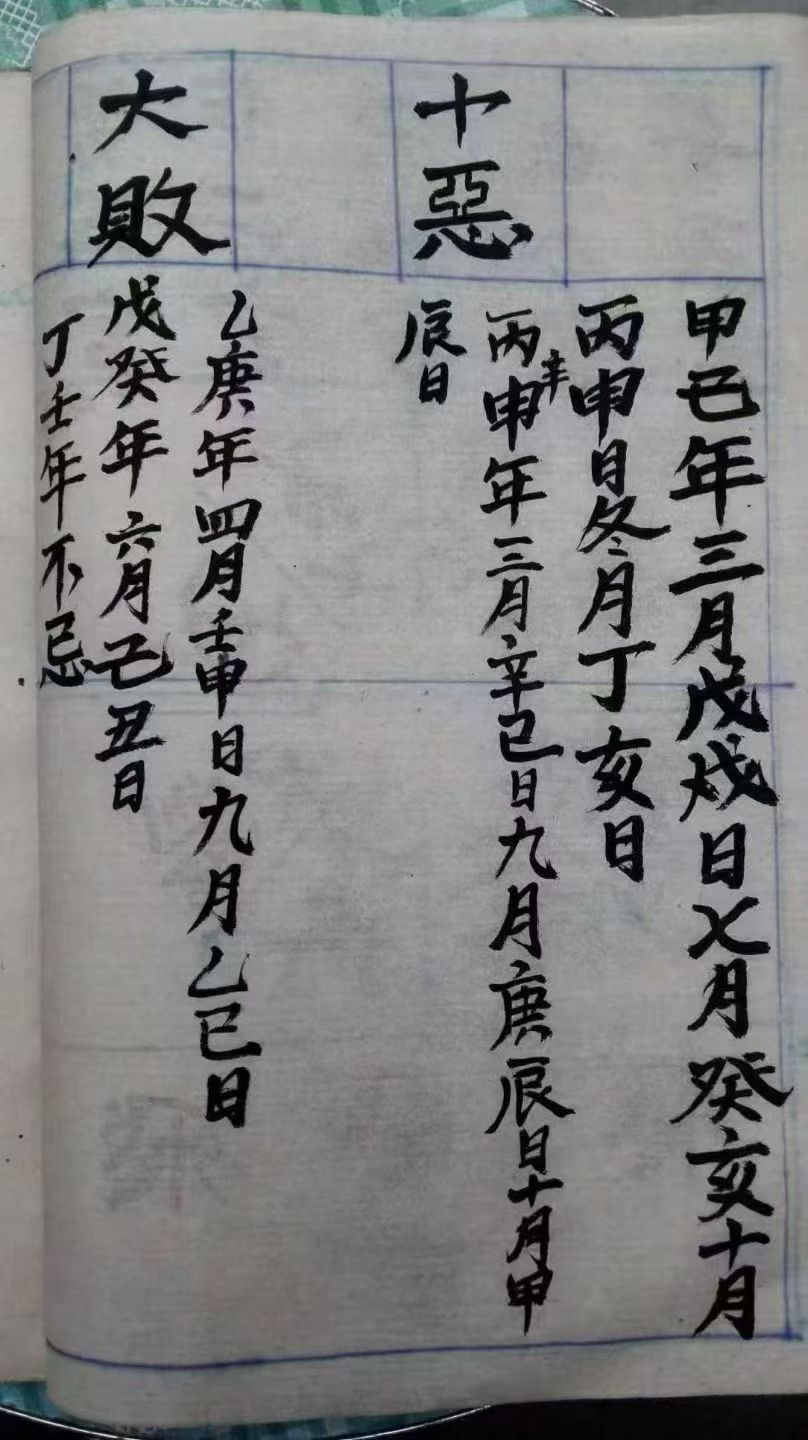 十惡
大敗
甲己年三月戊戌日七月癸亥十月
丙申日冬月丁亥日
丙申辛年三月辛巳日九月庚辰日十月甲
辰日
乙庚年四月壬申日九月乙巳日
戊癸年六月己丑日
丁壬年不忌